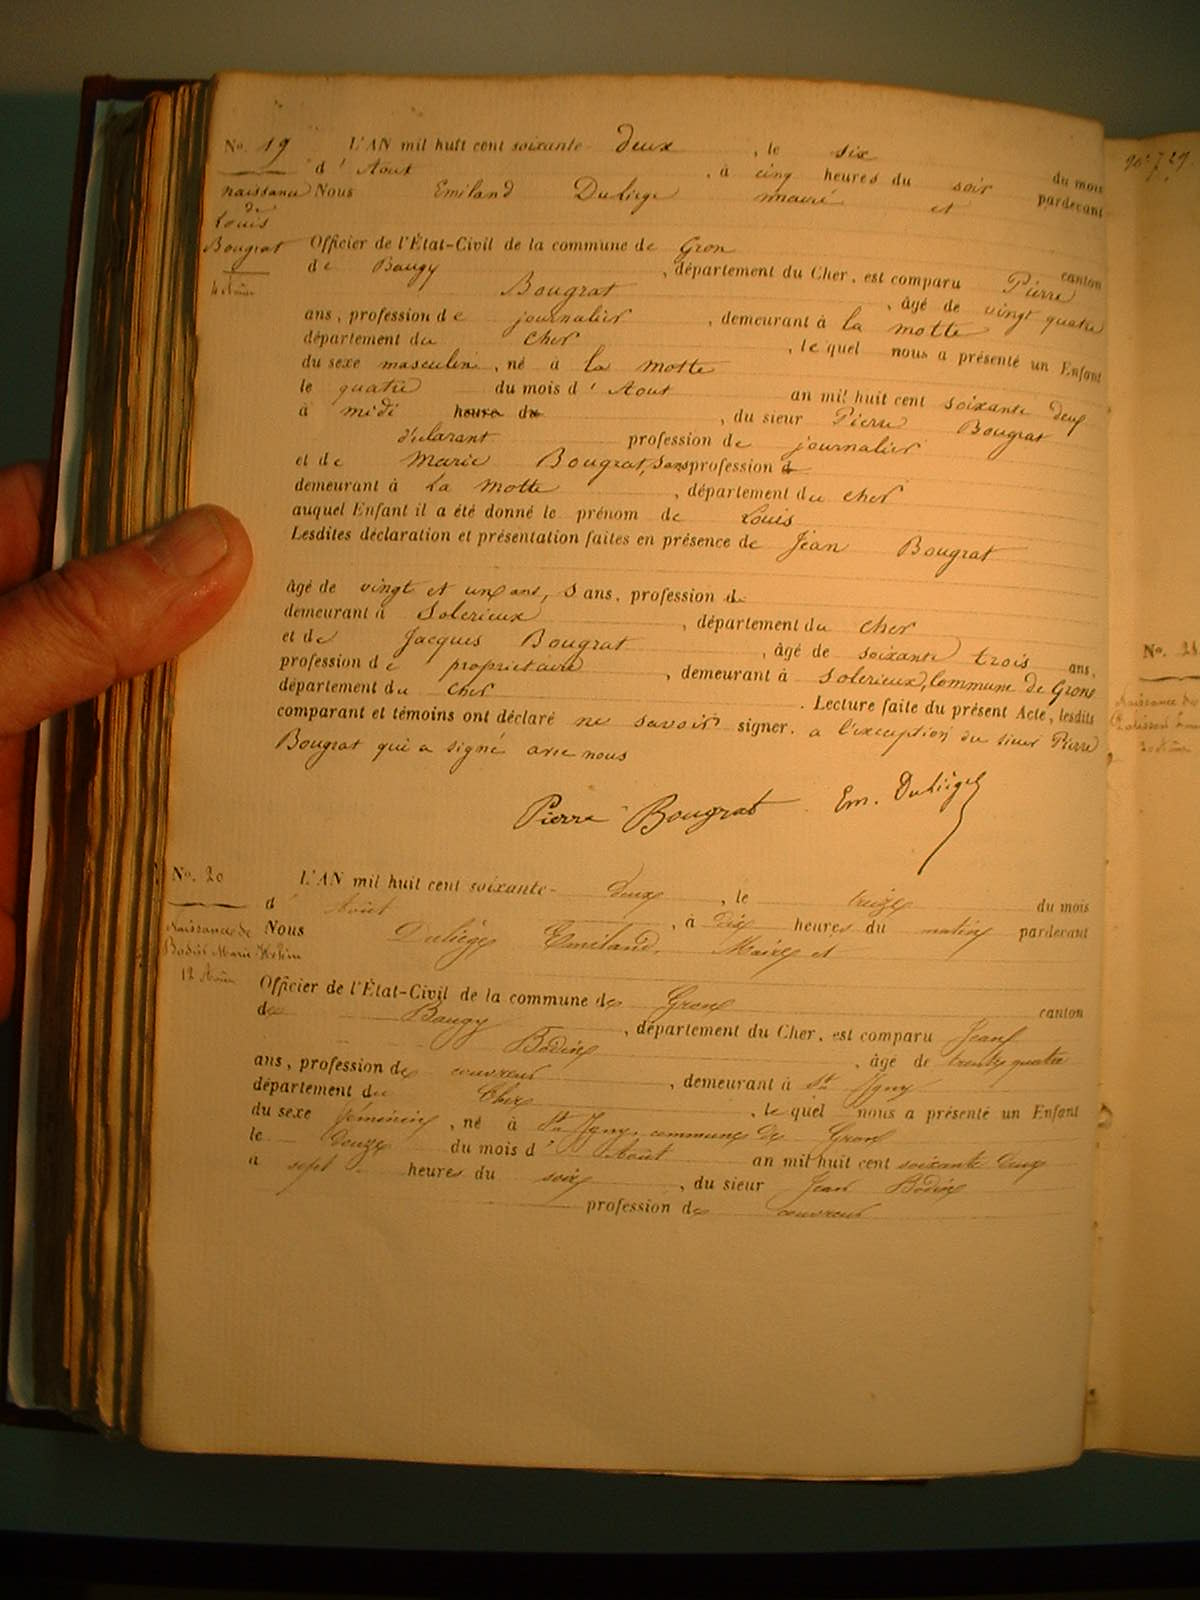 No. 19
naissance
de
Louis
Bougrat
4 Août
L'AN mil huit cent soixante deux, le six du mois
d'Aout, à cinq heures du soir pardevant
Nous Emiland Duliège maire et
Officier de l'État-Civil de la commune de Gron canton
de Baugy, département du Cher, est comparu Pierre
Bougrat, âgé de vingt quatre
ans, profession de journalier, demeurant à la motte
département du cher, le quel nous a présenté un Enfant
du sexe masculin, né à la motte
le quatre du mois d'Aout an mil huit cent soixante deux
à midi heure du, du sieur Pierre Bougrat
déclarant profession de journalier
et de Marie Bougrat, sans profession d
demeurant à La Motte, département du cher
auquel Enfant il a été donné le prénom de Louis
Lesdites déclaration et présentation faites en présence de Jean Bougrat
âgé de vingt et un ans, Sans, profession de
demeurant à Solerieux, département du cher
et de Jacques Bougrat, âgé de soixante trois ans,
profession de propriétaire, demeurant à Solerieux, Commune de Gron
département du cher. Lecture faite du présent Acte, lesdits
comparant et témoins ont déclaré ne savoir signer. a l'exception du sieur Pierre
Bougrat qui a signé avec nous
Pierre Bougrat Em. Duliège
No. 20
Naissance de
Bodin Marie
12 Août
L'AN mil huit cent soixante-deux, le treize du mois
d'Août, à dix heures du matin pardevant
Nous Duliège Emiland, Maire et
Officier de l'État-Civil de la commune de Gron canton
de Baugy, département du Cher, est comparu Jean
Bodin, âgé de trente quatre
ans, profession de couvreur, demeurant à St Igny
département du Cher, le quel nous a présenté un Enfant
du sexe féminin, né à St Igny, commune de Gron
le douze du mois d'Août an mil huit cent soixante deux
à sept heures du soir, du sieur Jean Bodin
profession de couvreur
No. 21
Naissance de